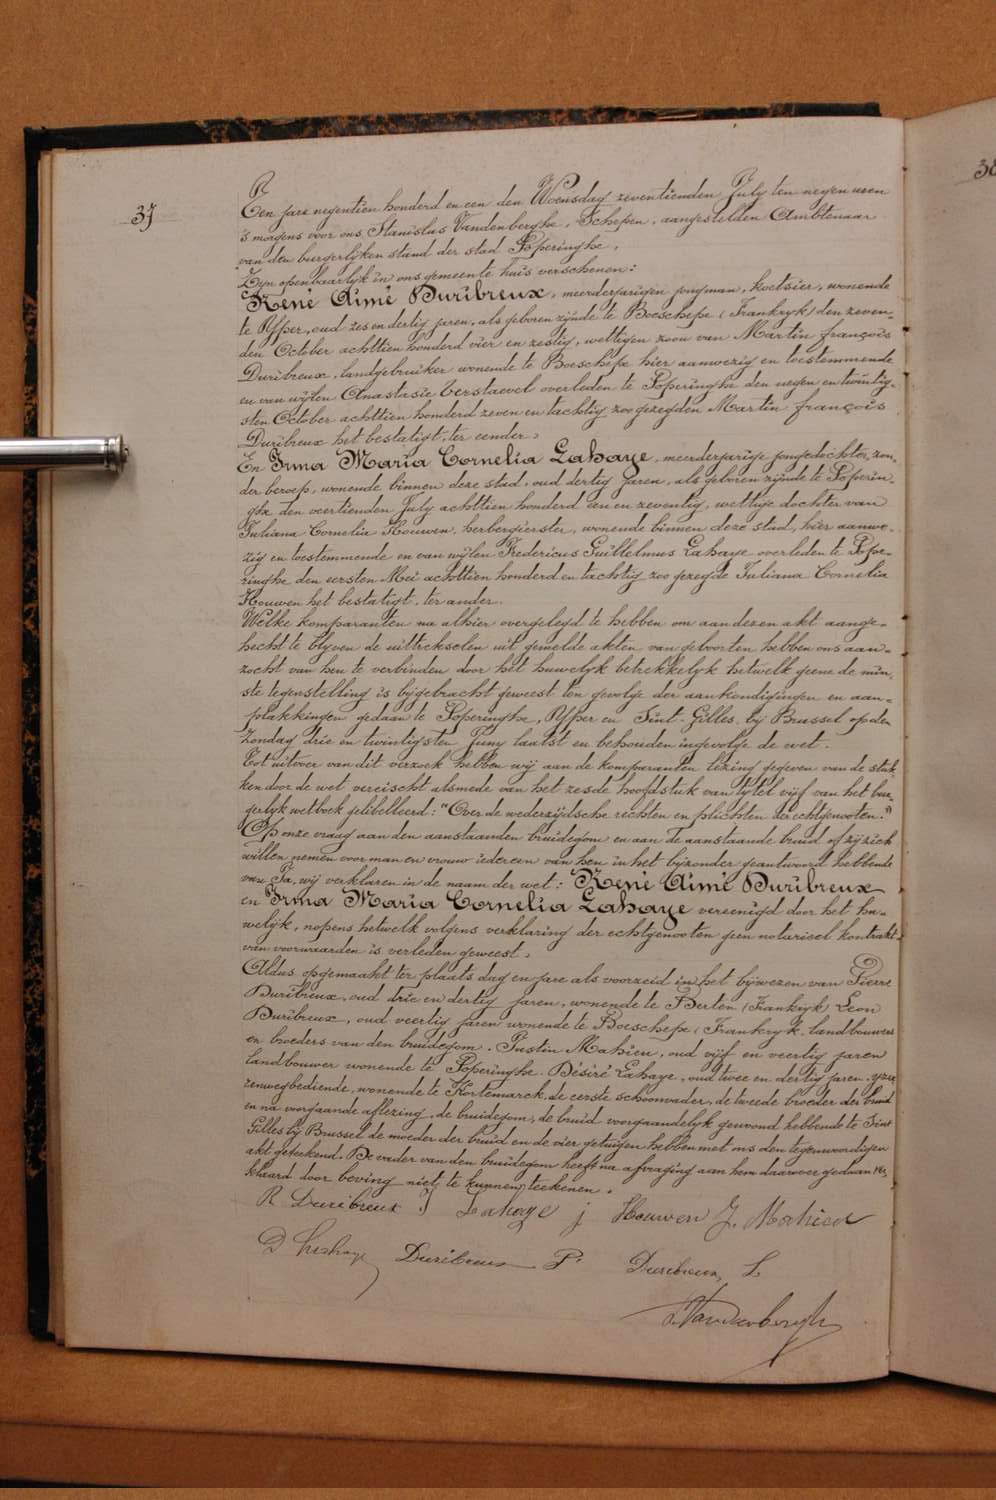 38
37
Ten jare negentien honderd en een den Woensdag zeventienden July ten negen uren
's morgens voor ons Stanislas Vandenberghe, Schepen, aangestelden Ambtenaar
van den burgerlyken stand der stad Poperinghe,
Zyn openbaarlyk in ons gemeente huis verschenen:
René Aimé Duribreux, meerderjarigen jongman, koetsier, wonende
te Ypper, oud zes en dertig jaren, als geboren zynde te Boeschepe (Frankryk) den zeven-
den October achttien honderd vier en zestig, wettigen zoon van Martin françois
Duribreux, landgebruiker wonende te Boeschepe hier aanwezig en toestemmende
en van wylen Anastasie Verstaevel overleden te Poperinghe den negen en twintig-
sten October achttien honderd zeven en tachtig zoo gezegden Martin françois
Duribreux het bestatigt, ter eender,
En Irma Maria Cornelia Lahaye, meerderjarige jongedochter, zon-
der beroep, wonende binnen deze stad, oud dertig jaren, als geboren zynde te Poperin-
ghe den veertienden July achttien honderd een en zeventig, wettige dochter van
Juliana Cornelia Houwen, herbergierster, wonende binnen deze stad, hier aanwe-
zig en toestemmende en van wylen Fredericus Guillelmus Lahaye overleden te Pope-
ringhe den eersten Mei achttien honderd en tachtig zoo gezegde Juliana Cornelia
Houwen het bestatigt, ter ander.
Welke komparanten na alhier overgelegd te hebben om aan dezen akt aange-
hecht te blyven de uittrekselen uit gemelde akten van geboorten hebben ons aan-
zocht van hen te verbinden door het huwelyk betrekkelyk hetwelk geene de min-
ste tegenstelling is bygebracht geweest ten gevolge der aankondigingen en aan-
plakkingen gedaan te Poperinghe, Ypper en Sint-Gilles by Brussel op den
Zondag drie en twintigsten Juny laatst en behouden ingevolge de wet.
Tot uitvoer van dit verzoek hebben wy aan de komparanten lezing gegeven van de stuk-
ken door de wet vereischt alsmede van het zesde hoofdstuk van tytel vyf van het bur-
gerlyk wetboek gelibelleerd: "Over de wederzydsche rechten en plichten der echtgenooten."
Op onze vraag aan den aanstaanden bruidegom en aan de aanstaande bruid of zy zich
willen nemen voor man en vrouw iedereen van hen in het byzonder geantwoord hebbende
van Ja, wy verklaren in de naam der wet: René Aimé Duribreux
en Irma Maria Cornelia Lahaye vereenigd door het hu-
welyk, nopens hetwelk volgens verklaring der echtgenooten geen notarieel kontrakt
van voorwaarden is verleden geweest.
Aldus opgemaakt ter plaats dag en jare als voorzeid in het bywezen van Pierre
Duribreux, oud drie en dertig jaren, wonende te Berten (Frankryk) Leon
Duribreux, oud veertig jaren wonende te Boeschepe (Frankryk, landbouwers
en broeders van den bruidegom, Justin Mahieu, oud vyf en veertig jaren
landbouwer wonende te Poperinghe, Désiré Lahaye, oud twee en dertig jaren, yze-
renwegbediende, wonende te Kortemarck, de eerste schoonvader, de tweede broeder der bruid
en na voorgaande aflezing, de bruidegom, de bruid voorgaandelyk gewoond hebbende te Sint
Gilles by Brussel de moeder der bruid en de vier getuigen hebben met ons den tegenwoordigen
akt geteekend. De vader van den bruidegom heeft na afvraging aan hem daarover gedaan ver-
klaard door beving niet te kunnen teekenen.
R Duribreux I Lahaye j Houwen J. Mahieu
D Lahaye Duribreux P. Duribreux L
S. Vandenberghe